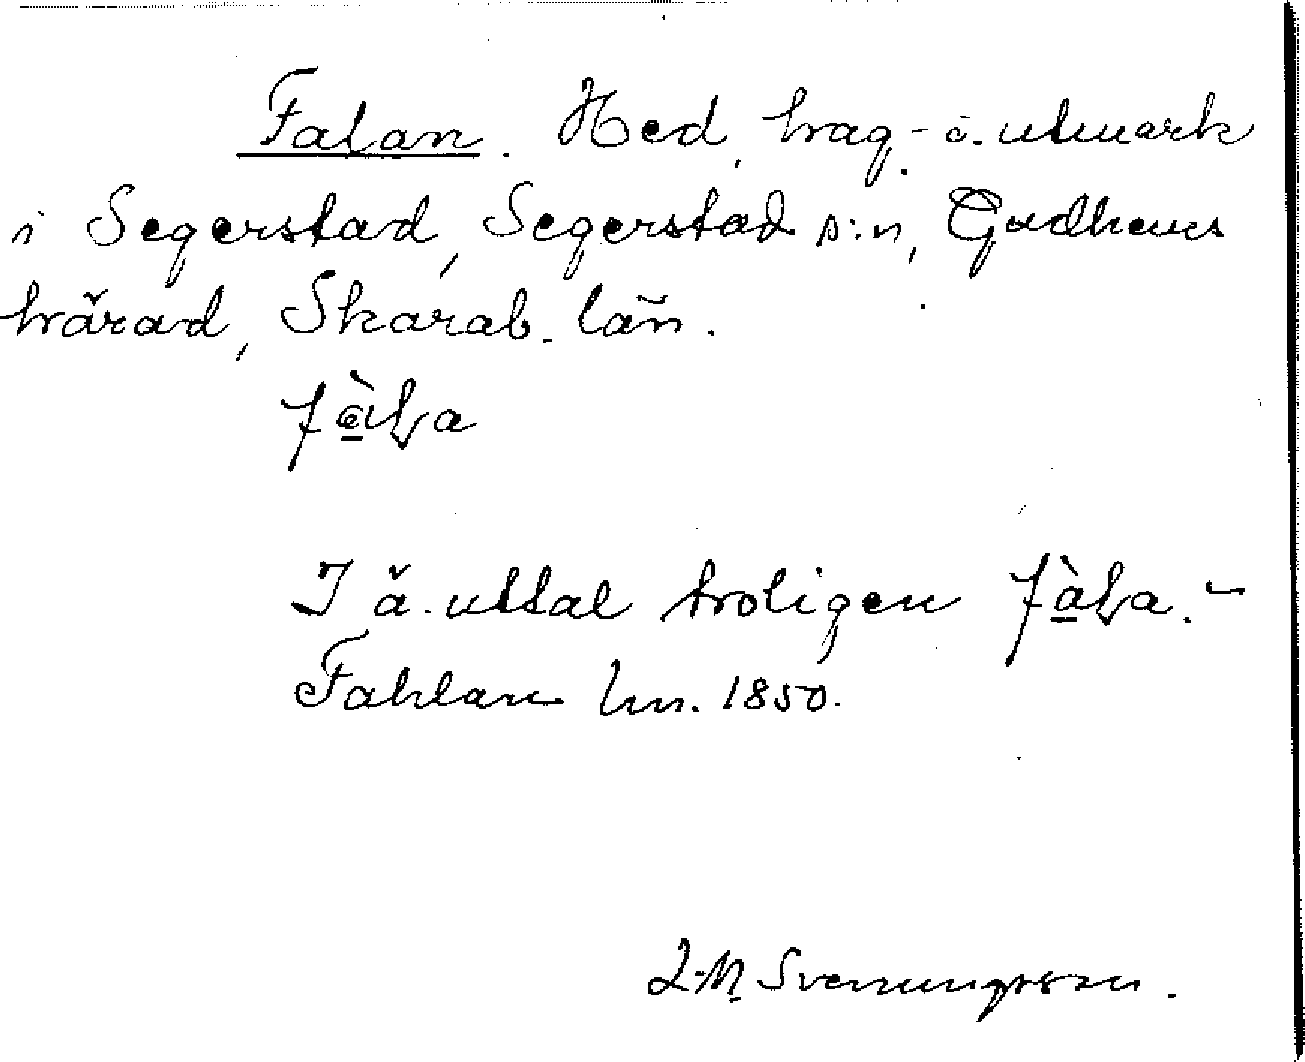 Falan. Hed, hag- o. utmark
i Segerstad, Segerstad s:n, Gudhems
härad, Skarab. län.
fàɽa
I ä. uttal troligen fàɽa. –
Fahlan hm. 1850.
L-M Svenungsson.